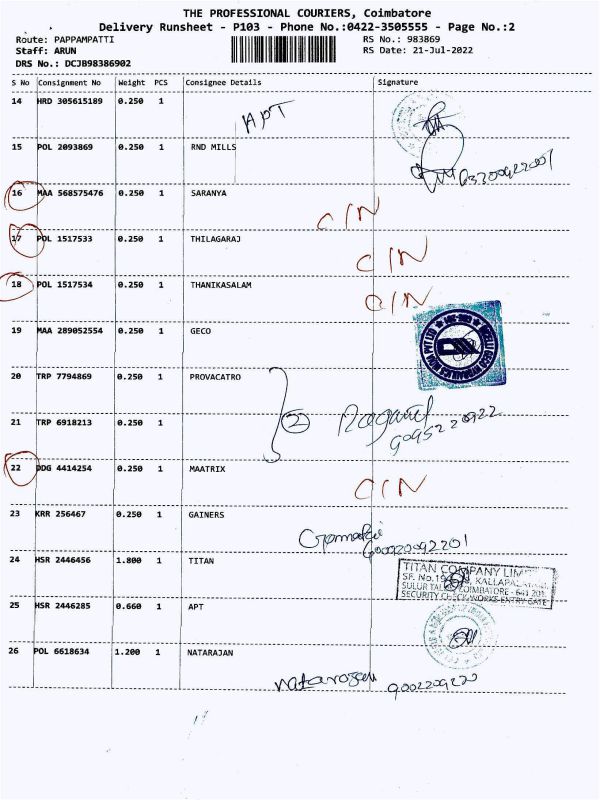 THE PROFESSIONAL COURIERS, Coimbatore
Delivery Runsheet - P103 - Phone No.:0422-3505555 - Page No.:2
Route: PAPPAMPATTI RS No.: 983869
Staff: ARUN RS Date: 21-Jul-2022
DRS No.: DCJB98386902
S No Consignment No Weight PCS Consignee Details Signature
14 HRD 305615189 0.250 1 APT
15 POL 2093869 0.250 1 RND MILLS
16 MAA 568575476 0.250 1 SARANYA
C/N
17 POL 1517533 0.250 1 THILAGARAJ
C/N
18 POL 1517534 0.250 1 THANIKASALAM
C/N
19 MAA 289052554 0.250 1 GECO
20 TRP 7794869 0.250 1 PROVACATRO
2
21 TRP 6918213 0.250 1
22 DDG 4414254 0.250 1 MAATRIX
C/N
23 KRR 256467 0.250 1 GAINERS
24 HSR 2446456 1.800 1 TITAN
TITAN COMPANY LIM
SF. No. KALLAPA
SULUR COIMBATORE - 641 201
SECURITY CHECK WORKS ENTRY GATE
25 HSR 2446285 0.660 1 APT
26 POL 6618634 1.200 1 NATARAJAN
natarajan